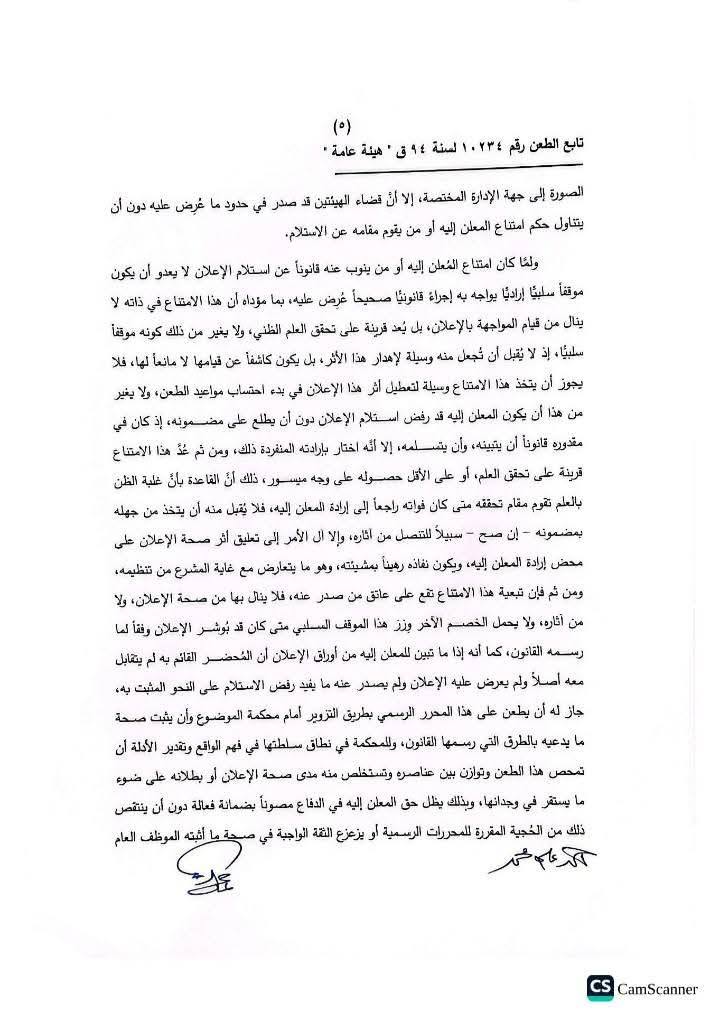 (٥)
تابع الطعن رقم ١٠٢٣٤ لسنة ٩٤ ق " هيئة عامة "
الصورة إلى جهة الإدارة المختصة، إلا أنَّ قضاء الهيئتين قد صدر في حدود ما عُرِض عليه دون أن
يتناول حكم امتناع المعلن إليه أو من يقوم مقامه عن الاستلام.
ولمَّا كان امتناع المُعلن إليه أو من ينوب عنه قانوناً عن استلام الإعلان لا يعدو أن يكون
موقفاً سلبيًّا إراديًّا يواجه به إجراءً قانونيًّا صحيحاً عُرِض عليه، بما مؤداه أن هذا الامتناع في ذاته لا
ينال من قيام المواجهة بالإعلان، بل يُعد قرينة على تحقق العلم الظني، ولا يغير من ذلك كونه موقفاً
سلبيًّا، إذ لا يُقبل أن تُجعل منه وسيلة لإهدار هذا الأثر، بل يكون كاشفاً عن قيامها لا مانعاً لها، فلا
يجوز أن يتخذ هذا الامتناع وسيلة لتعطيل أثر هذا الإعلان في بدء احتساب مواعيد الطعن، ولا يغير
من هذا أن يكون المعلن إليه قد رفض استلام الإعلان دون أن يطلع على مضمونه، إذ كان في
مقدوره قانوناً أن يتبينه، وأن يتسلمه، إلا أنَّه اختار بإرادته المنفردة ذلك، ومن ثم عُدَّ هذا الامتناع
قرينة على تحقق العلم، أو على الأقل حصوله على وجه ميسور، ذلك أنَّ القاعدة بأنَّ غلبة الظن
بالعلم تقوم مقام تحققه متى كان فواته راجعاً إلى إرادة المعلن إليه، فلا يُقبل منه أن يتخذ من جهله
بمضمونه – إن صح – سبيلاً للتنصل من آثاره، وإلا آل الأمر إلى تعليق أثر صحة الإعلان على
محض إرادة المعلن إليه، ويكون نفاذه رهيناً بمشيئته، وهو ما يتعارض مع غاية المشرع من تنظيمه،
ومن ثم فإن تبعية هذا الامتناع تقع على عاتق من صدر عنه، فلا ينال بها من صحة الإعلان، ولا
من آثاره، ولا يحمل الخصم الآخر وِزر هذا الموقف السلبي متى كان قد بُوشر الإعلان وفقاً لما
رسمه القانون، كما أنه إذا ما تبين للمعلن إليه من أوراق الإعلان أن المُحضر القائم به لم يتقابل
معه أصلاً ولم يعرض عليه الإعلان ولم يصدر عنه ما يفيد رفض الاستلام على النحو المثبت به،
جاز له أن يطعن على هذا المحرر الرسمي بطريق التزوير أمام محكمة الموضوع وأن يثبت صحة
ما يدعيه بالطرق التي رسمها القانون، وللمحكمة في نطاق سلطتها في فهم الواقع وتقدير الأدلة أن
تمحص هذا الطعن وتوازن بين عناصره وتستخلص منه مدى صحة الإعلان أو بطلانه على ضوء
ما يستقر في وجدانها، وبذلك يظل حق المعلن إليه في الدفاع مصوناً بضمانة فعالة دون أن ينتقص
ذلك من الحُجية المقررة للمحررات الرسمية أو يزعزع الثقة الواجبة في صحة ما أثبته الموظف العام
CS CamScanner